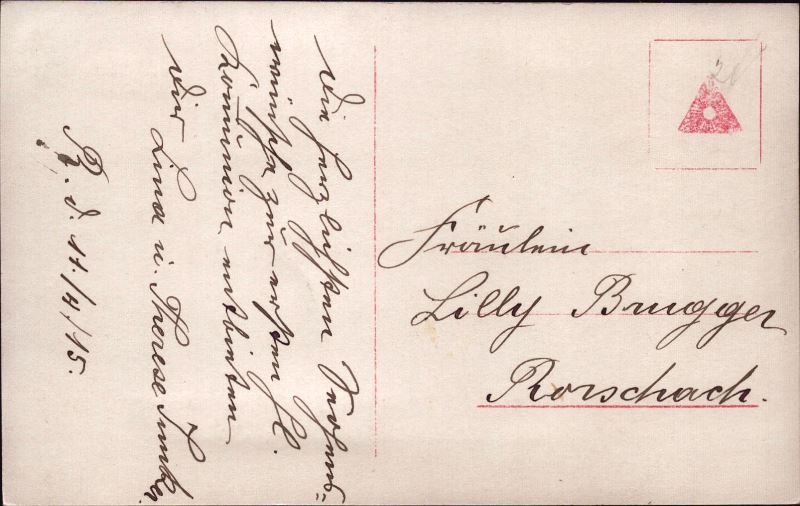 Die herzlichsten Segens=
wünsche zur ersten hl.
Kommunion entbieten
Dir Lina u. Therese
R. d. 11./4./15.
Fräulein
Lilly Brugger
Rorschach.